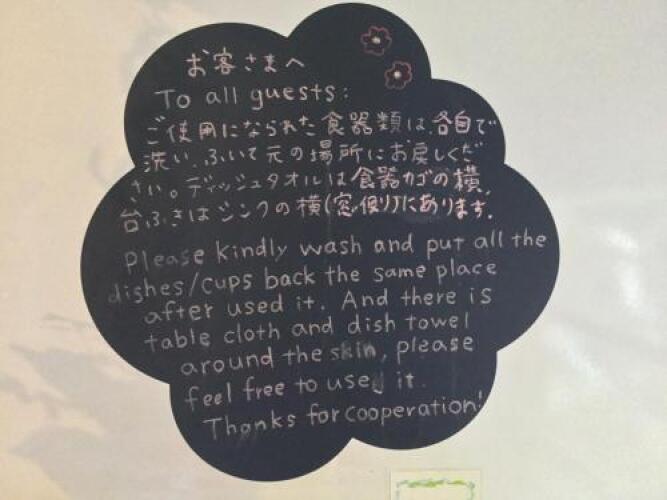 お客さまへ
To all guests:
ご使用になられた食器類は、各自で
洗い、ふいて元の場所にお戻しくだ
さい。ディッシュタオルは食器カゴの横、
台ふきはシンクの横(窓側)にあります.
Please kindly wash and put all the
dishes/cups back the same place
after used it. And there is
table cloth and dish towel
around the skin, please
feel free to use it.
Thanks for cooperation!